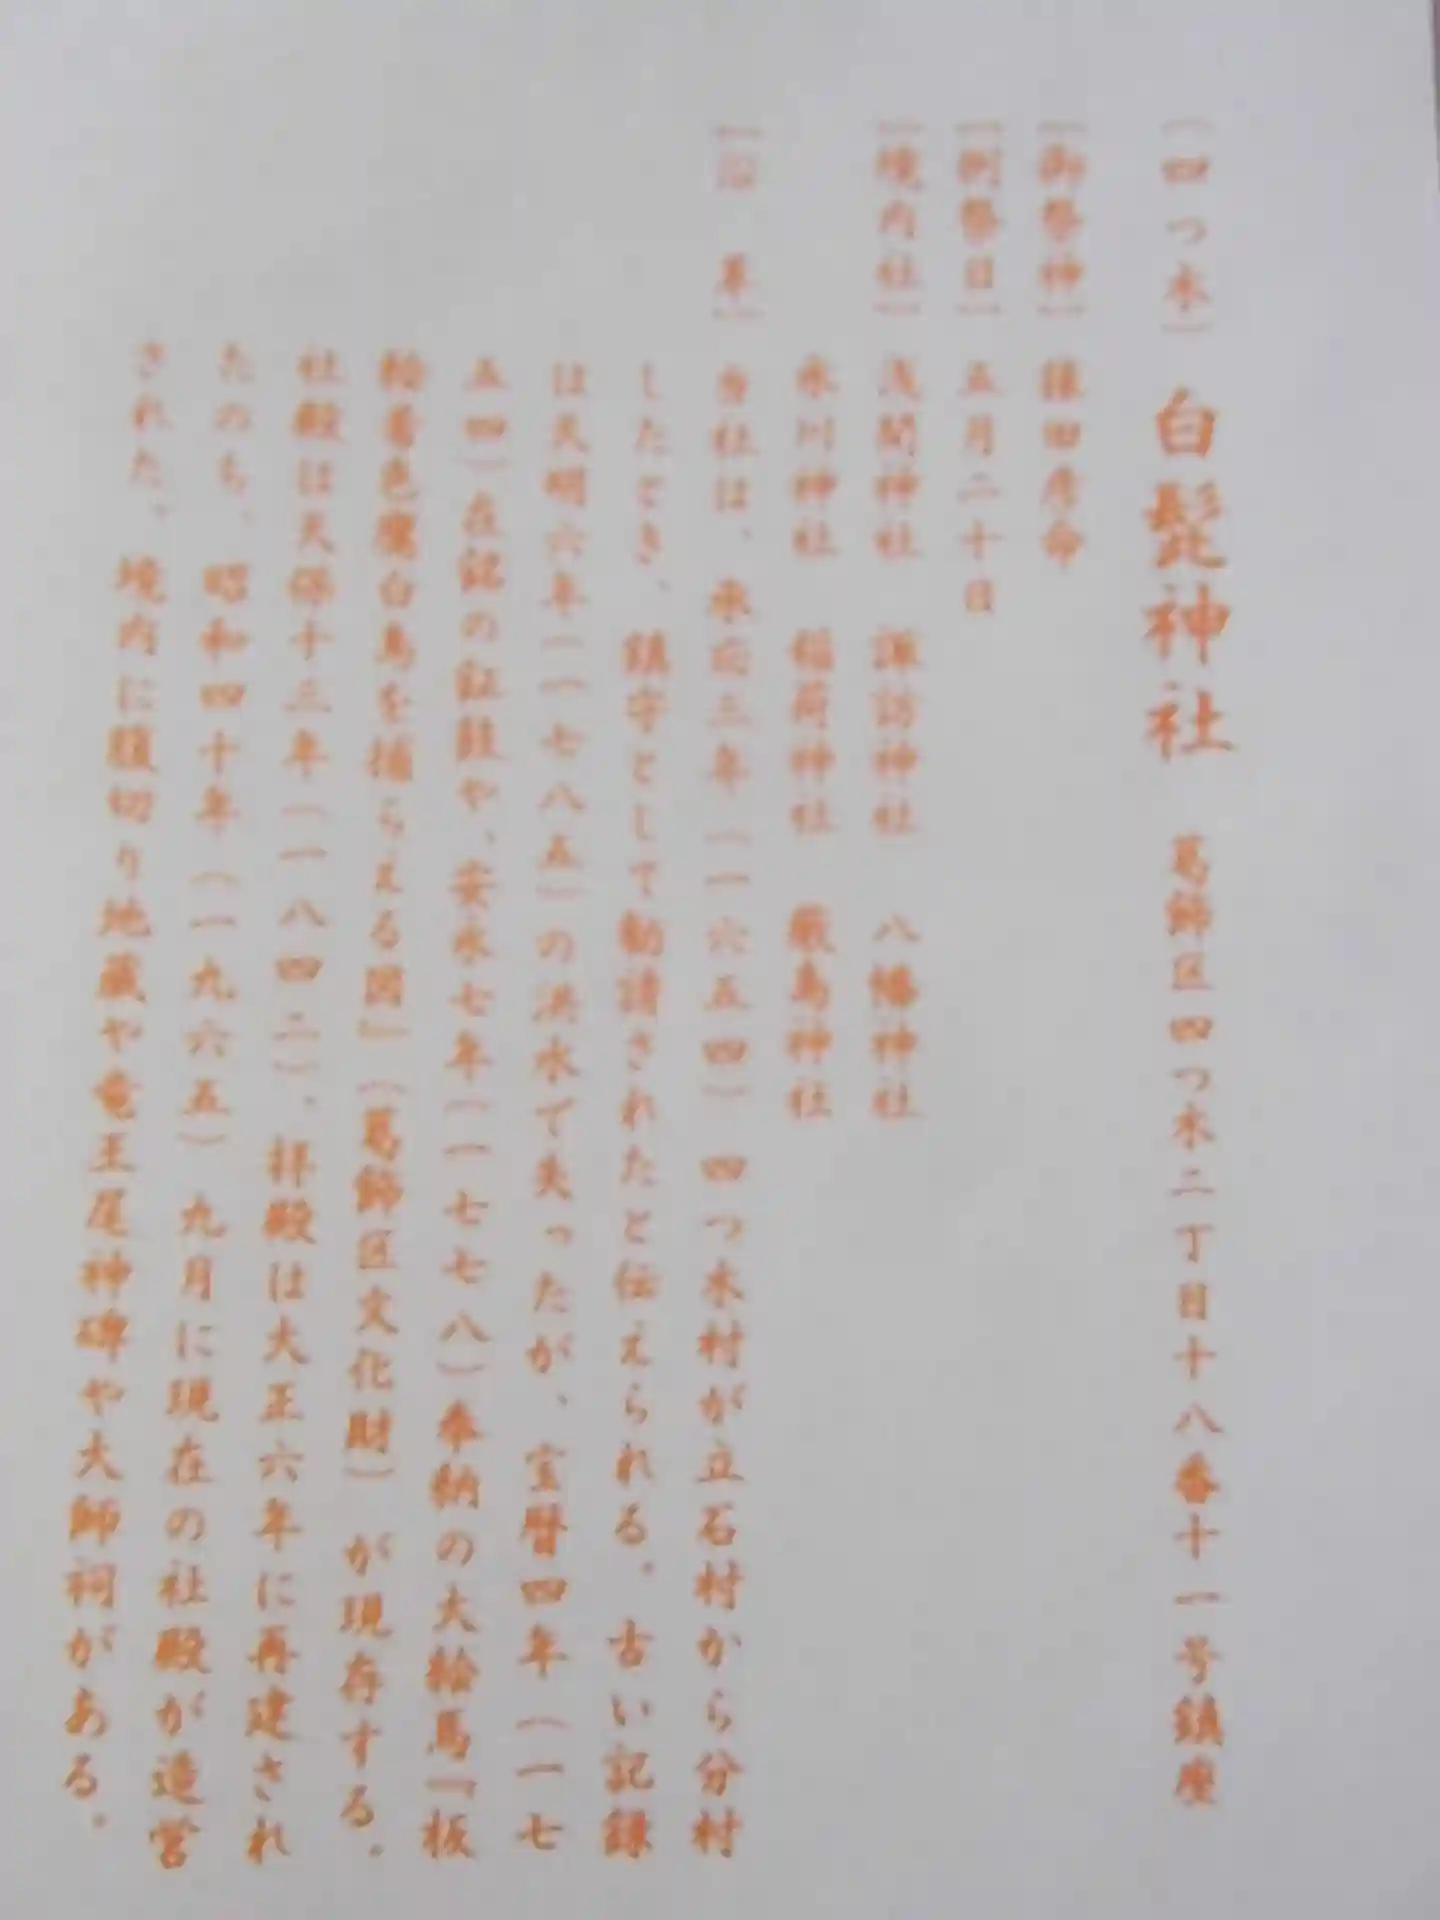 (四つ木) 白髭神社 葛飾区四つ木二丁目十八番十一号鎮座
[御祭神] 猿田彦命
[例祭日] 五月二十日
[境内社] 浅間神社 諏訪神社 八幡神社
氷川神社 稲荷神社 厳島神社
[沿 革] 当社は、承応三年(一六五四)四つ木村が立石村から分村
したとき、鎮守として勧請されたと伝えられる。古い記録
は天明六年(一七八五)の洪水で失ったが、宝暦四年(一七
五四)在銘の鉦鼓や、安永七年(一七七八)奉納の大絵馬『板
絵着色鷹白鳥を捕らえる図』(葛飾区文化財)が現存する。
社殿は天保十三年(一八四二)、拝殿は大正六年に再建され
たのち、昭和四十年(一九六五)九月に現在の社殿が造営
された。境内に腹切り地蔵や竜王尾神碑や大師祠がある。